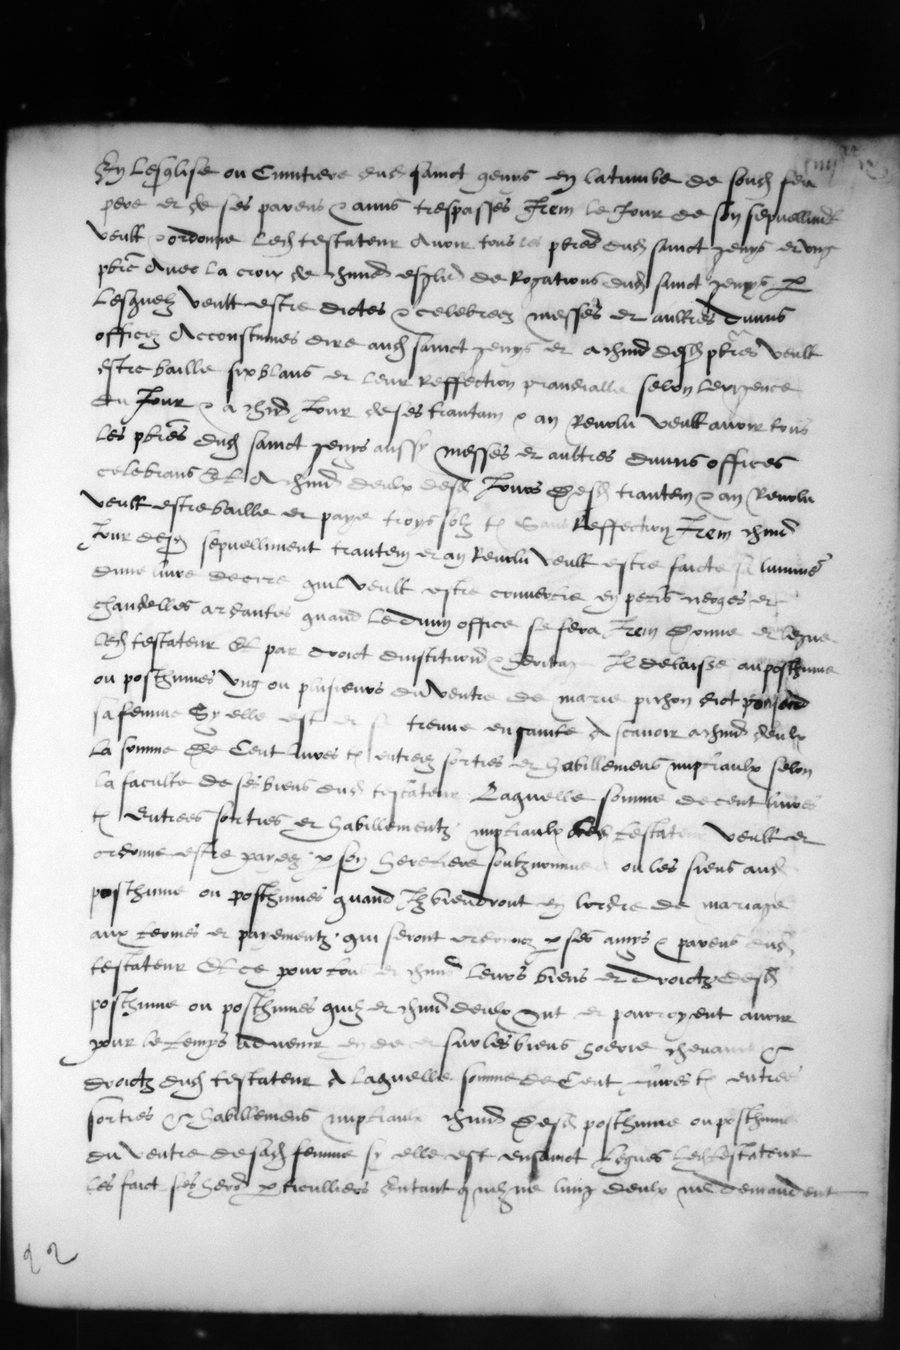 En lesglise ou Cimitiere dud sainct genys en la tumbe de soud feu
pere et de ses parens & amis trespasses Item le Jour de son sepvelliment
veult & ordonne led testateur avoir tous les pbres dud sainct genys et ung
pbre avec la croix de chune esglise de Rogations dud sainct genys p
lesquelz veult estre dictes & celebrees messes et aultres divins
offices Accoustumes dire aud sainct genys et a chun desd pbres veult
estre baille six blans et leur Reffection prandialle selon lexigence
du Jour & a chun Jour de ses trantain & an Revolu veult avoir tous
les pbres dud sainct genys aussy messes et aultres divins offices
celebrans Et A chun deulx desd Jours desd trantein & an Revolu
veult estre baille et paye troys solz tz sans Reffection Item chun
Jour desd sepvelliment trantein et an Revolu veult estre faicte sa luminere
dune livre de cire quil veult estre convertie en petis cierges et
chandelles ardantes quand le divin office se fera Item donne et legue
led testateur Et par droict dinstitution & heritaige Il delaisse au posthume
ou posthumes ung ou plusieurs du ventre de marie pichon dict
sa femme Sy elle est et se treuve ensaincte A scavoir a chun deulx
la somme de Cent livres tz entrees sorties et habillemens nuptiaulx selon
la faculte de ses biens dud testateur Laquelle somme de cent livres
tz Entrees sorties et habillementz nuptiaulx led testateur veult et
ordonne estre payez p son heretiere soubznommee ou les siens aud
posthume ou posthumes quand Ilz viendront en lordre de mariage
aux termes et payementz qui seront ordonnez p ses amys & parens dud
testateur Et ce pour tous et chun leurs biens et droictz desd
posthume ou posthumes quilz et chun deulx ont et pourroyent avoir
pour le temps advenir en et sur les biens hoerie chevance &
droictz dud testateur A laquelle somme de Cent livres tz entrees
sorties & habillemens nuptiaulx chun desd posthume ou posthumes
du ventre de sad femme sy elle est ensainct legues led testateur
les faict ses herd p ticulliers Entant q quilz ne lung deulx ne demandent